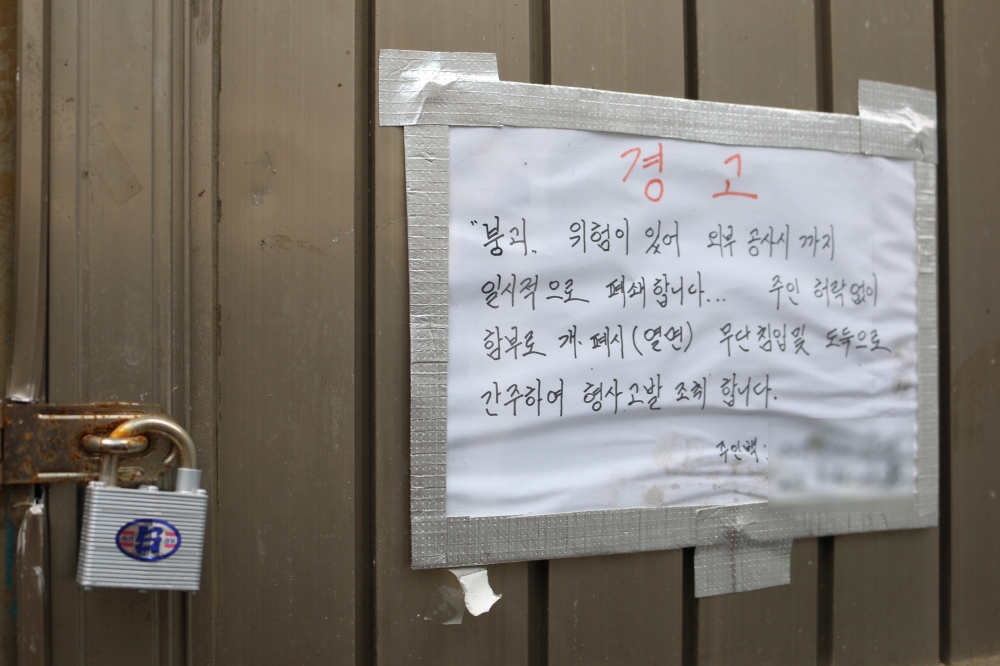 경 고
"붕괴„ 위험이 있어 외부 공사시 까지
일시적으로 폐쇄합니다... 주인 허락없이
함부로 개·폐시(열면) 무단침입및 도둑으로
간주하여 형사고발 조취 합니다.
주인백: